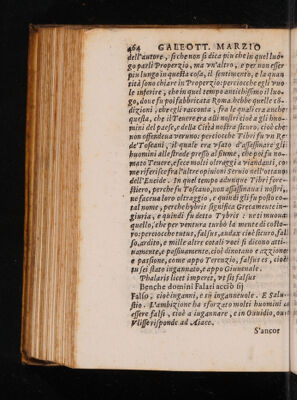 464 GALEOTT. MARZIO
dell'autore, si che non si dica piu che in quel luo-
go parli Properzio, ma vn'altro, e per non esser
piu lungo in questa cosa, il sentimento, e la quan
tità sono chiare in Properzio: percioche egli vuo
le inferire, che in quel tempo antichissimo il luo-
go, doue fu poi fabbricata Roma hebbe quelle co
dizioni, che egli racconta, fra le quali era anche
questa, che il Teuere era alli nostri cioè a gli huo-
mini del paese, e della Città nostra sicuro, cioè che
non offendeua veruno: percioche Tibri fu vn Re
de' Toscani, il quale era vsato d'assassinare gli
huomini alle strade presso al fiume, che poi fu no-
mato Teuere, e fece molti oltraggi a viandanti, co
me riferisce fra l'altre opinioni Seruio nell'ottauo
dell'Eneide. In quel tempo adunque Tibri fore-
stiero, perche fu Toscano, non assassinaua i nostri,
ne faceua loro oltraggio, e quindi gli fu posto co
tal nome, perche hybris significa Grecamente in-
giuria, e quindi fu detto Tybris: ne ti muoua
quello, che per ventura turbò la mente di colto-
ro: percioche tutus, falsus, audax cioè sicuro, fal-
so, ardito, e mille altre cotali voci si dicono atti-
uamente, e passiuamente, cioè dinotano e azzione
e passione, come appo Terenzio, falsus es, cioè
tu sei stato ingannato, e appo Giuuenale.
Phalaris licet imperet, vt sis falsus
Benche domini Falari acciò sij
Falso, cioè inganni, e sij ingannevole. E Salu-
stio. L'ambizione ha sforzato molti huomini a
essere falsi, cioè a ingannare, e in Ouuidio, ou
Vlisse risponde ad Aiace.
S'ancor